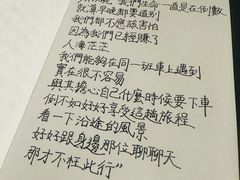 我們的生命一直是在倒數
就算早晚都要道別
我們都不應該害怕
因為我們已經賺了
人海茫茫
我們能夠在同一班車上遇到
實在很不容易
與其擔心自己什麼時候要下車
倒不如好好享受這趟旅程
看一下沿途的風景
好好跟身邊那位聊聊天
那才不枉此行"